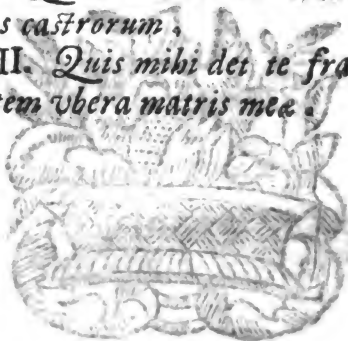 s castrorum,
II. Quis mihi det te fra
tem vbera matris meæ.